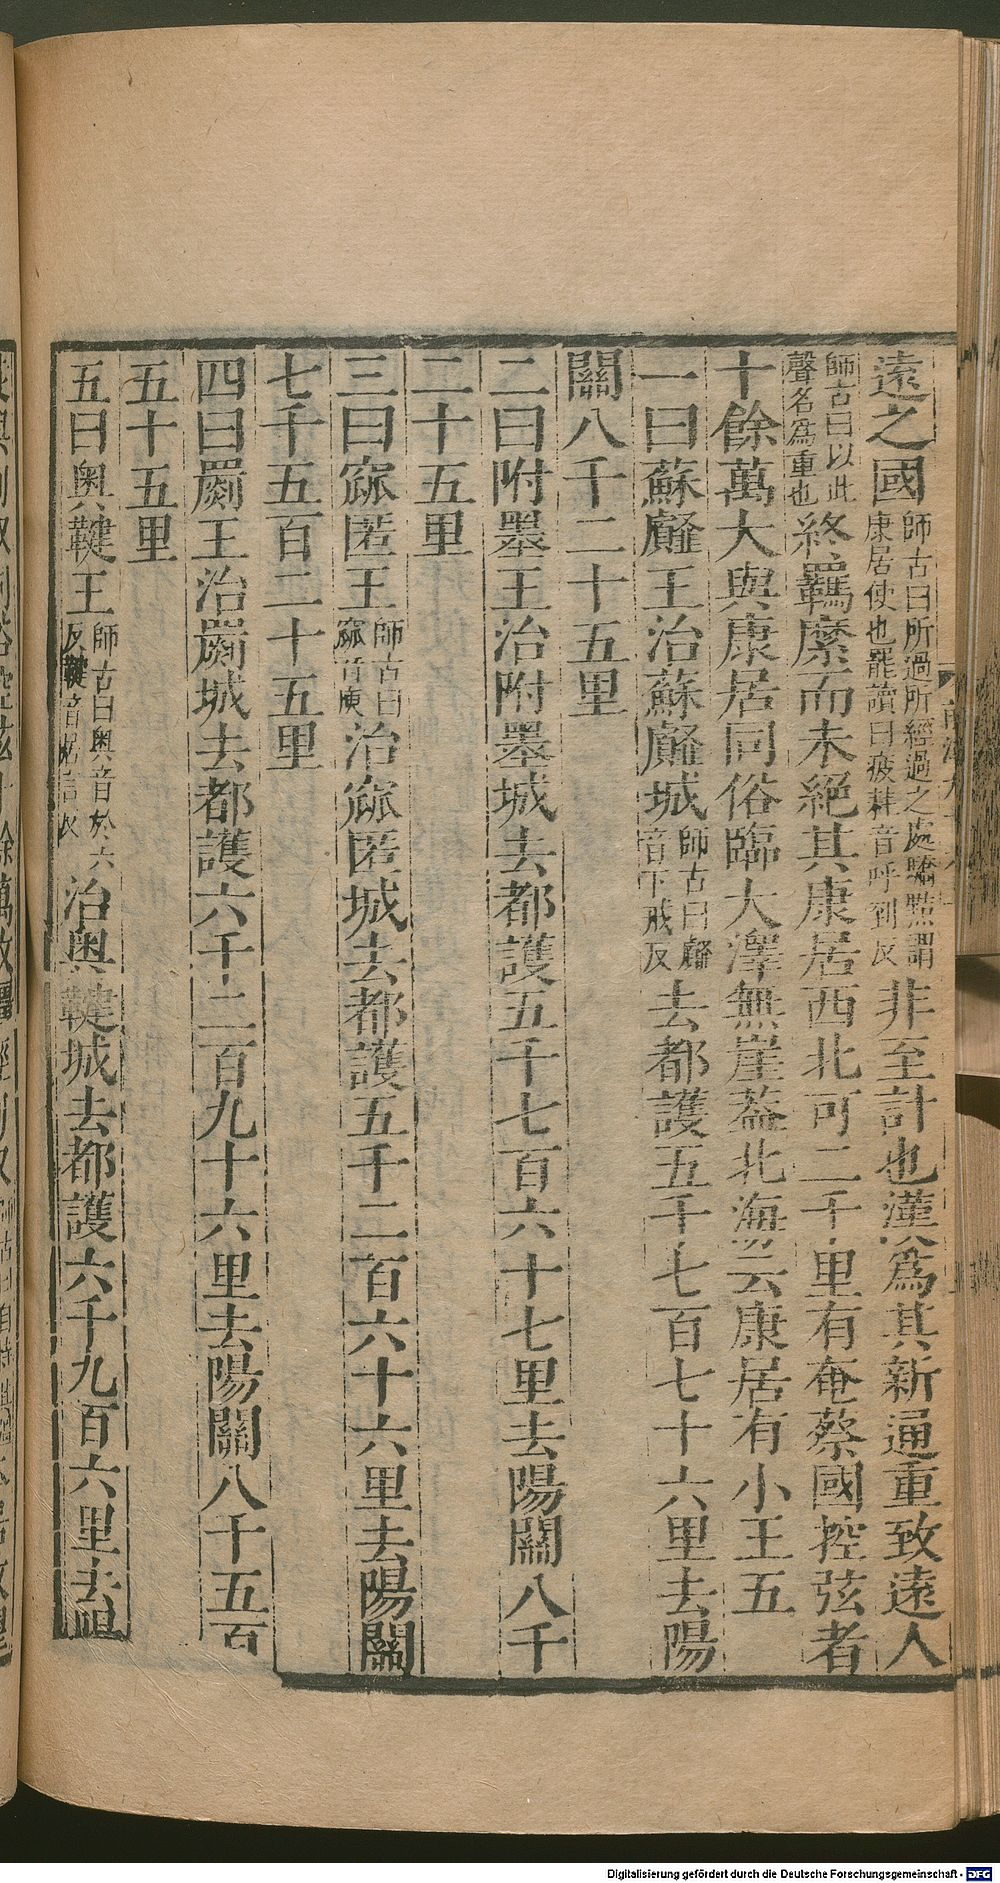 遠之國師古曰所過所經過之處驕黠謂康居使也罷讀曰疲耗音呼到反非至計也漢爲其新通重致遠人
師古曰以此聲名爲重也終羈縻而未絕其康居西北可二千里有奄蔡國控弦者
十餘萬大與康居同俗臨大澤無崖蓋北海云康居有小王五
一曰蘇䪥王治蘇䪥城師古曰䪥音下戒反去都護五千七百七十六里去陽
關八千二十五里
二曰附墨王治附墨城去都護五千七百六十七里去陽關八千
二十五里
三曰窳匿王師古曰窳音庾治窳匿城去都護五千二百六十六里去陽關
七千五百二十五里
四曰罽王治罽城去都護六千二百九十六里去陽關八千五百
五十五里
五曰奥鞬王師古曰奥音於六反鞬音居言反治奥鞬城去都護六千九百六里去陽
Digitalisierung gefördert durch die Deutsche Forschungsgemeinschaft - DFG